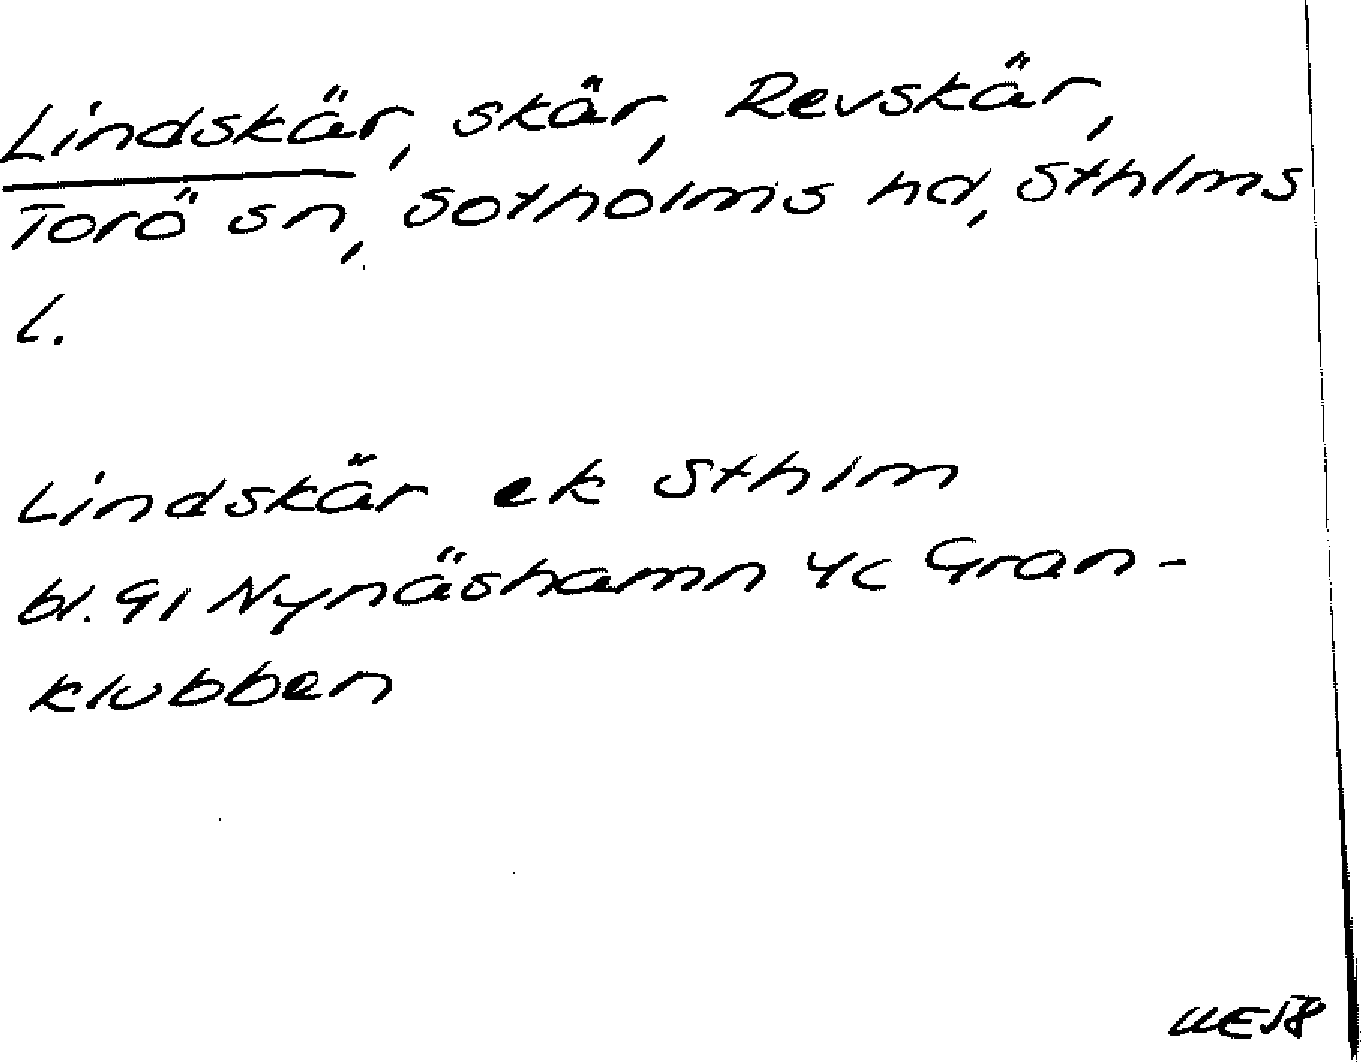 Lindskär, skär, Revskär,
Torö sn, Sotholms hd, Sthlms
l.
Lindskär ek Sthlm
bl. 91 Nynäshamn 4c Gran-
klubben
UE58